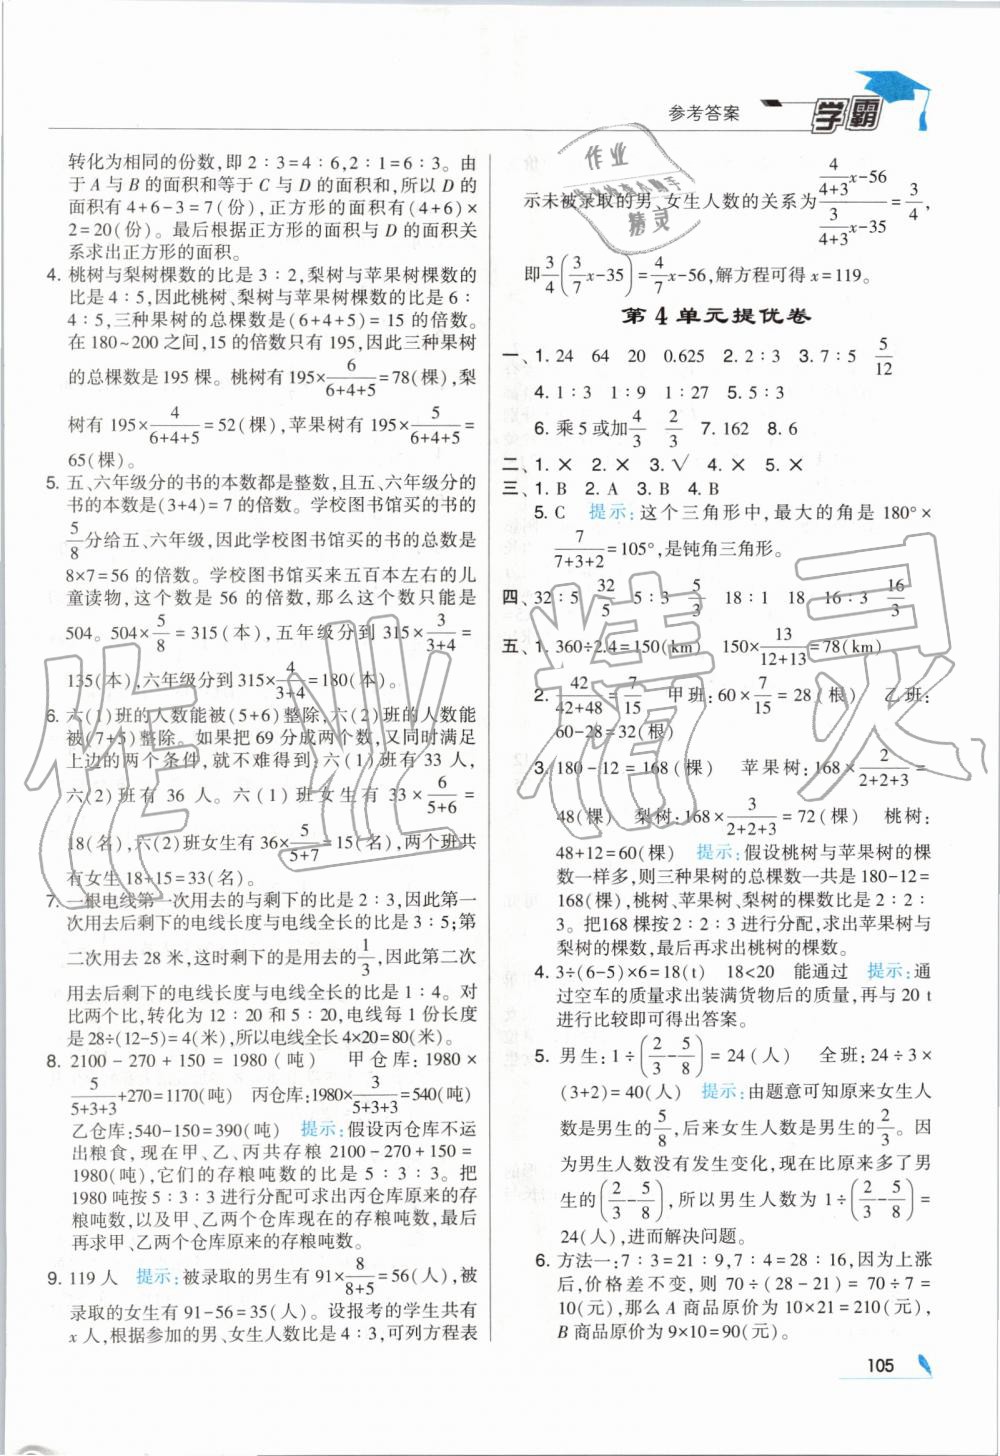 参考答案 学霸
转化为相同的份数,即 2∶3=4∶6,2∶1=6∶3。由
于 A 与 B 的面积和等于 C 与 D 的面积和,所以 D 的
面积有 4+6-3=7(份),正方形的面积有(4+6)×
2=20(份)。最后根据正方形的面积与 D 的面积关
系求出正方形的面积。
4. 桃树与梨树棵数的比是 3∶2,梨树与苹果树棵数的
比是 4∶5,因此桃树、梨树与苹果树棵数的比是 6∶
4∶5,三种果树的总棵数是(6+4+5)= 15 的倍数。
在 180~200 之间,15 的倍数只有 195,因此三种果树
的总棵数是 195 棵。桃树有 195×6/(6+4+5)=78(棵),梨
树有 195×4/(6+4+5)=52(棵),苹果树有 195×5/(6+4+5)=
65(棵)。
5. 五、六年级分的书的本数都是整数,且五、六年级分的
书的本数是(3+4)= 7 的倍数。学校图书馆买的书的
5/8分给五、六年级,因此学校图书馆买的书的总数是
8×7=56 的倍数。学校图书馆买来五百本左右的儿
童读物,这个数是 56 的倍数,那么这个数只能是
504。504×5/8=315(本),五年级分到 315×3/(3+4)=
135(本),六年级分到 315×4/(3+4)=180(本)。
6. 六(1)班的人数能被(5+6)整除,六(2)班的人数能
被(7+5)整除。如果把 69 分成两个数,又同时满足
上边的两个条件,就不难得到:六(1)班有 33 人,
六(2)班有 36 人。六(1)班女生有 33×6/(5+6)=
18(名),六(2)班女生有 36×5/(5+7)=15(名),两个班共
有女生 18+15=33(名)。
7. 一根电线第一次用去的与剩下的比是 2∶3,因此第一
次用去后剩下的电线长度与电线全长的比是 3∶5;第
二次用去 28 米,这时剩下的是用去的1/3,因此第二次
用去后剩下的电线长度与电线全长的比是 1∶4。对
比两个比,转化为 12∶20 和 5∶20,电线每 1 份长度
是 28÷(12-5)=4(米),所以电线全长 4×20=80(米)。
8. 2100-270+150=1980(吨) 甲仓库:1980×
5/(5+3+3)+270=1170(吨) 丙仓库:1980×3/(5+3+3)=540(吨)
乙仓库:540-150=390(吨) 提示:假设丙仓库不运
出粮食,现在甲、乙、丙共存粮 2100-270+150=
1980(吨),它们的存粮吨数的比是 5∶3∶3。把
1980吨按 5∶3∶3 进行分配可求出丙仓库原来的存
粮吨数,以及甲、乙两个仓库现在的存粮吨数,最后
再求甲、乙两个仓库原来的存粮吨数。
9. 119 人 提示:被录取的男生有 91×8/(8+5)=56(人),被
录取的女生有 91-56=35(人)。设报考的学生共有
x 人,根据参加的男、女生人数比是 4∶3,可列方程表
示未被录取的男、女生人数的关系为 (4/(4+3)x-56)/(3/(4+3)x-35)=3/4,
即3/4(3/7x-35)=4/7x-56,解方程可得 x=119。
第 4 单元提优卷
一、1. 24 64 20 0.625 2. 2∶3 3. 7∶5 5/12
4. 1∶3 1∶9 1∶27 5. 5∶3
6. 乘 5 或加4/3 2/3 7. 162 8. 6
二、1. × 2. × 3. √ 4. × 5. ×
三、1. B 2. A 3. B 4. B
5. C 提示:这个三角形中,最大的角是 180°×
7/(7+3+2)=105°,是钝角三角形。
四、32∶5 32/5 5∶3 5/3 18∶1 18 16∶3 16/3
五、1. 360÷2.4=150(km) 150×13/(12+13)=78(km)
2. 42/(42+48)=7/15 甲班:60×7/15=28(根) 乙班:
60-28=32(根)
3. 180-12=168(棵) 苹果树:168×2/(2+2+3)=
48(棵) 梨树:168×3/(2+2+3)=72(棵) 桃树:
48+12=60(棵) 提示:假设桃树与苹果树的棵
数一样多,则三种果树的总棵数一共是 180-12=
168(棵),桃树、苹果树、梨树的棵数比是 2∶2∶
3。把168 棵按 2∶2∶3 进行分配,求出苹果树与
梨树的棵数,最后再求出桃树的棵数。
4. 3÷(6-5)×6=18(t) 18<20 能通过 提示:通
过空车的质量求出装满货物后的质量,再与 20 t
进行比较即可得出答案。
5. 男生:1÷(2/3-5/8)=24(人) 全班:24÷3×
(3+2)=40(人) 提示:由题意可知原来女生人
数是男生的5/8,后来女生人数是男生的2/3。因
为男生人数没有发生变化,现在比原来多了男
生的(2/3-5/8),所以男生人数为 1÷(2/3-5/8)=
24(人),进而解决问题。
6. 方法一:7∶3=21∶9,7∶4=28∶16,因为上涨
后,价格差不变,则 70÷(28-21)=70÷7=
10(元),那么 A 商品原价为 10×21=210(元),
B 商品原价为 9×10=90(元)。
105
作业精灵